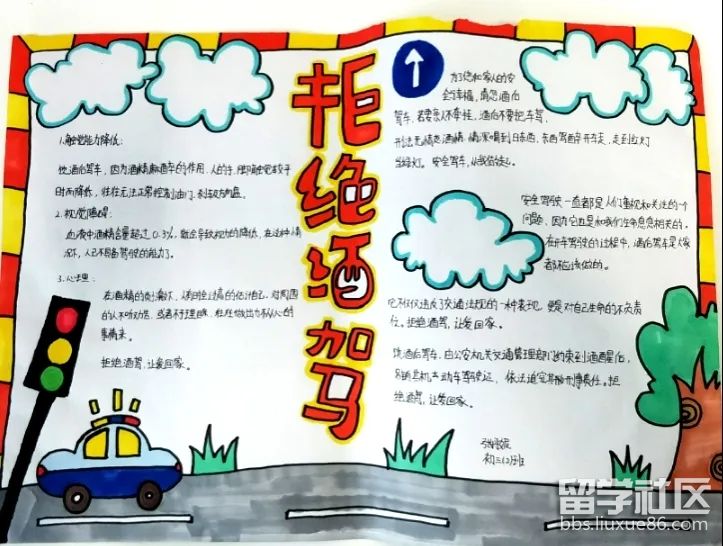 拒绝酒驾
1.触觉能力降低:
饮酒后驾车,因为酒精麻醉的作用,人的手、脚触觉较平
时而降低,往往无法正常控制油门、刹车及方向盘。
2.视觉障碍:
血液中酒精含量超过0.3%,就会导致视力的降低,在这种情
况下,人已不具备驾驶的能力了。
3.心理:
在酒精的刺激下,人有时会过高的估计自己,对周围
的人不听劝告,或者不予理睬,往往做出力不从心的
事情来。
拒绝酒驾,让爱回家。
为了您和家人的安
全与幸福,请您酒后
驾车,若要亲人不牵挂,酒后不要把车驾,
刑法无情惹酒精,情深喝到日东西,东西驾西开车走,走到红灯
当绿灯。安全驾车,从我做起。
安全驾驶一直都是人们重视和关注的一个
问题,因为它也是和我们生命息息相关的。
在开车驾驶的过程中,酒后驾车是大家
都不应该做的。
它不仅仅违反了交通法规的一种表现,更是对自己生命的不负责
任。拒绝酒驾,让爱回家。
饮酒后驾车,由公安机关交通管理部门约束到酒醒后,
吊销机动车驾驶证,依法追究其刑事责任。拒
绝酒驾,让爱回家。
初三(2)班
留学社区
bbs.liuxue86.com